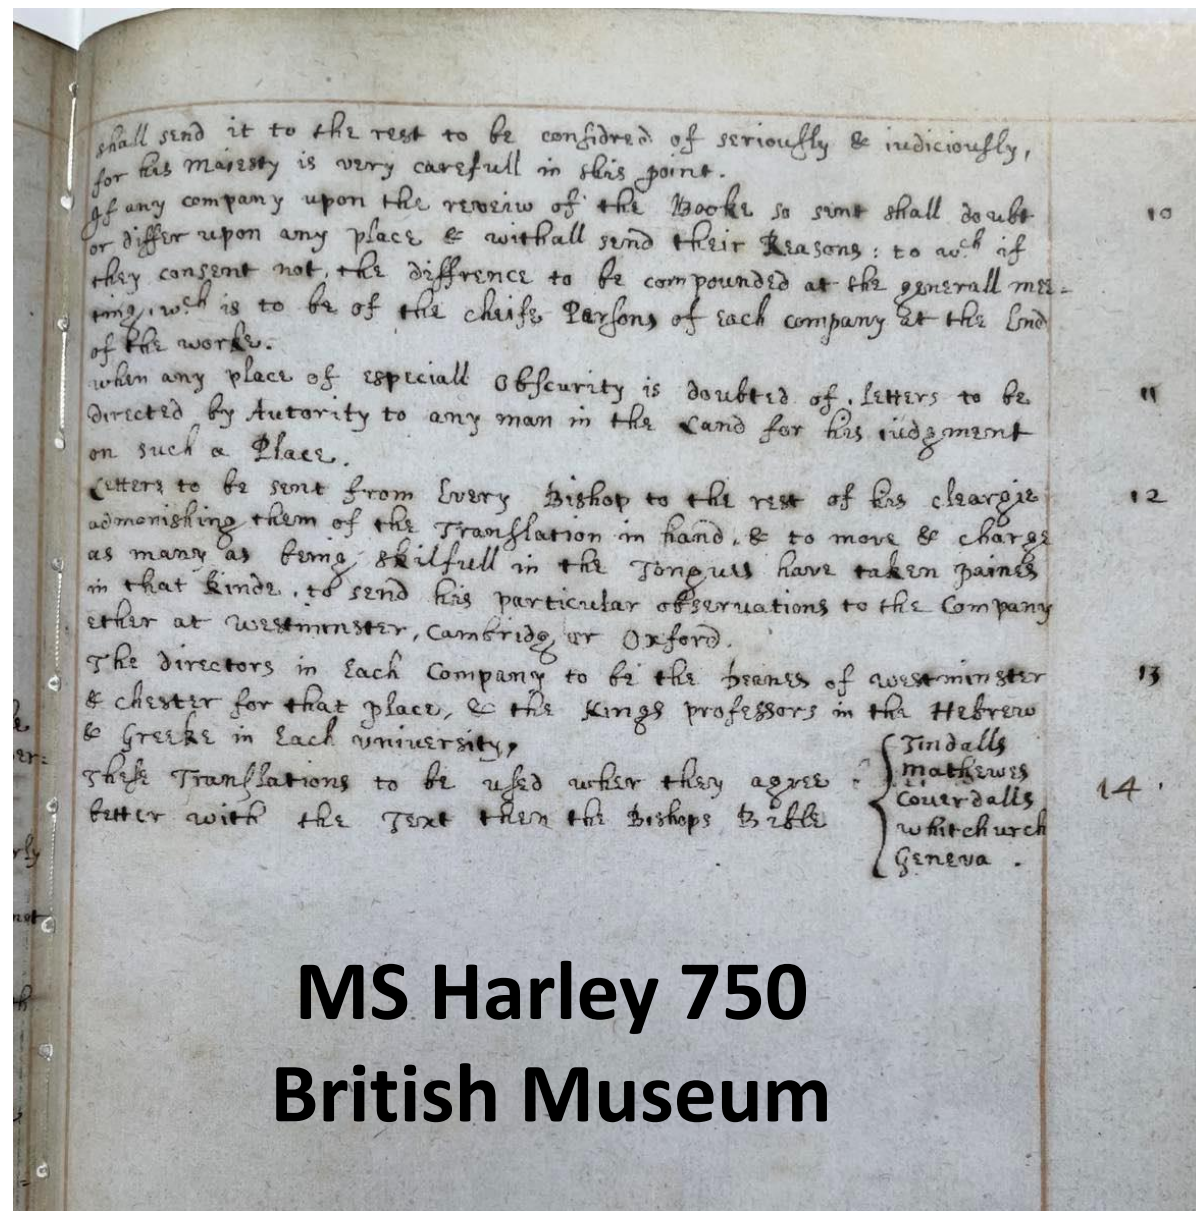 shall send it to the rest to be considred of seriously & iudiciously,
for his Maiesty is very carefull in this point.
If any company upon the reveiw of the Booke so sent shall doubt 10
or differ upon any place & withall send their Reasons: to wch if
they consent not, the diffrence to be compounded at the generall mee-
ting, wch is to be of the cheife Parsons of Each company at the End
of the worke.
when any place of especiall Obscurity is doubted of, letters to be 11
directed by Autority to any man in the Land for his iudgment
on such a Place.
Letters to be sent from Every Bishop to the rest of his cleargie 12
admonishing them of the Translation in hand, & to move & charge
as many as being skilfull in the Tongues have taken paines
in that kinde, to send his particular observations to the Company
ether at westminster, Cambridg or Oxford.
The directors in Each Company to be the Deanes of westminster 13
& chester for that place, & the Kings professors in the Hebrew
& Greeke in Each university,
These Translations to be used wher they agree 14
better with the Text then the Bishops Bible
Tindalls
Mathewes
Couerdalls
whitchurch
Geneva.
MS Harley 750
British Museum